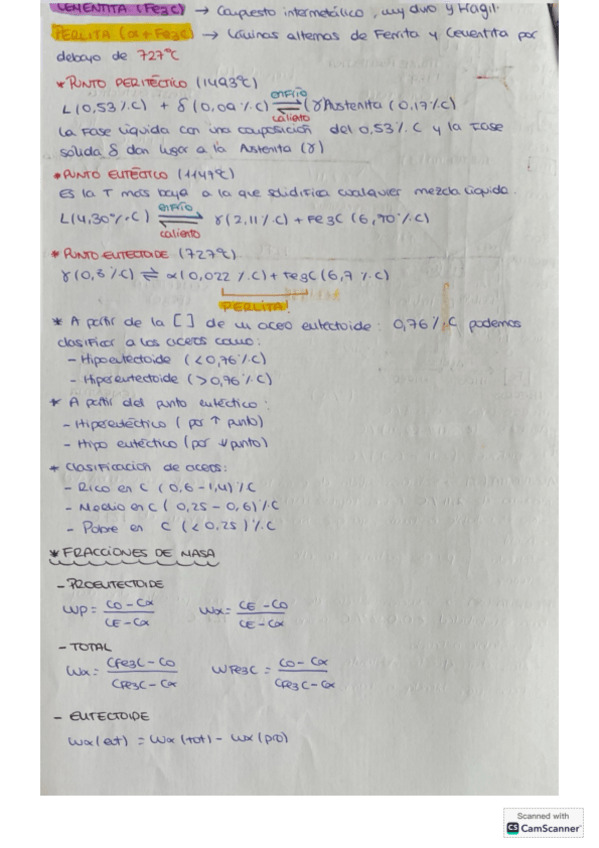 CEMENTITA (Fe3C) → Compuesto intermetálico, muy duro y frágil.
PERLITA (α + Fe3C) → Láminas alternas de Ferrita y Cementita por
debajo de 727ºC
* PUNTO PERITÉCTICO (1493ºC)
L (0,53 %C) + δ (0,09 %C) enfrío ⇌ caliento (γ Austenita (0,17%C)
La fase líquida con una composición del 0,53%C y la fase
sólida δ dan lugar a la Austenita (γ)
* PUNTO EUTÉCTICO (1149ºC)
Es la T más baja a la que solidifica cualquier mezcla líquida.
L(4,30%C) enfrío ⇌ caliento γ(2,11%C) + Fe3C (6,70%C)
* PUNTO EUTECTOIDE (727ºC)
γ(0,8%C) ⇌ α(0,022 %C) + Fe3C (6,7 %C)
PERLITA
* A partir de la [ ] de un acero eutectoide: 0,76%C podemos
clasificar a los aceros como:
- Hipoeutectoide (<0,76%C)
- Hipereutectoide (>0,76%C)
* A partir del punto eutéctico:
- Hipereutéctico (por ↑ punto)
- Hipo eutéctico (por ↓ punto)
+ Clasificación de aceros:
- Rico en C (0,6 - 1,4)%C
- Medio en C (0,25 - 0,6)%C
- Pobre en C (<0,25)%C
* FRACCIONES DE MASA
- PROEUTECTOIDE
Wp = CO - Cα / CE - Cα    Wα = CE - CO / CE - Cα
- TOTAL
Wα = CFe3C - CO / CFe3C - Cα    WFe3C = CO - Cα / CFe3C - Cα
- EUTECTOIDE
Wα(eut) = Wα(tot) - Wα(pro)
Scanned with
CS CamScanner